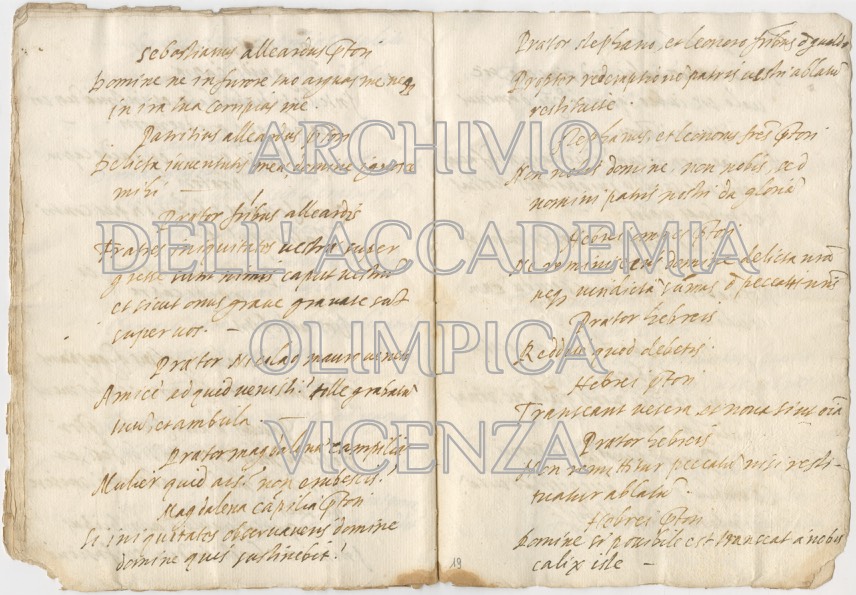 Sebastianus alleardus ptori
Domine ne in furore tuo arguas me neq
in ira tua corripias me
Patritius alleardus ptori
Delicta juventutis mea domine ignora
mihi —
Pretor fribus alleardis
Fratres iniquitates vestre super
gresse sunt caput vestru
et sicut onus grave gravate sut
super vos. —
Pretor Nicolao mauroceno
Amice ad quid venisti? tolle grabatu
tuu, et ambula. —
Pretor magdalena campilia
Mulier quid ais? non erubescis?
Magdalena capilia ptori
Si iniquitates observaveris domine
domine quis sustinebit?
Pretor stephano, et leonoro fribus d gualdo
Propter redemptione patris vestri ablatu
restituite.
Stephanus, et leonorus fres ptori
Non nobis domine, non nobis, sed
nomini patris nostri da gloria
Hebrei omnes ptori
Ne reminiscaris domine delicta nra
neq vindicta sumas d peccatis nris
Pretor hebreis
Redde quod debetis.
Hebrei ptori
Transeant vetera, et nova sint oia
Pretor hebreis
Non remittitur peccatu nisi resti-
tuatur ablatu.
Hebrei ptori
Domine si possibile est transeat a nobis
calix iste —
19
ARCHIVIO
DELL'ACCADEMIA
OLIMPICA
VICENZA